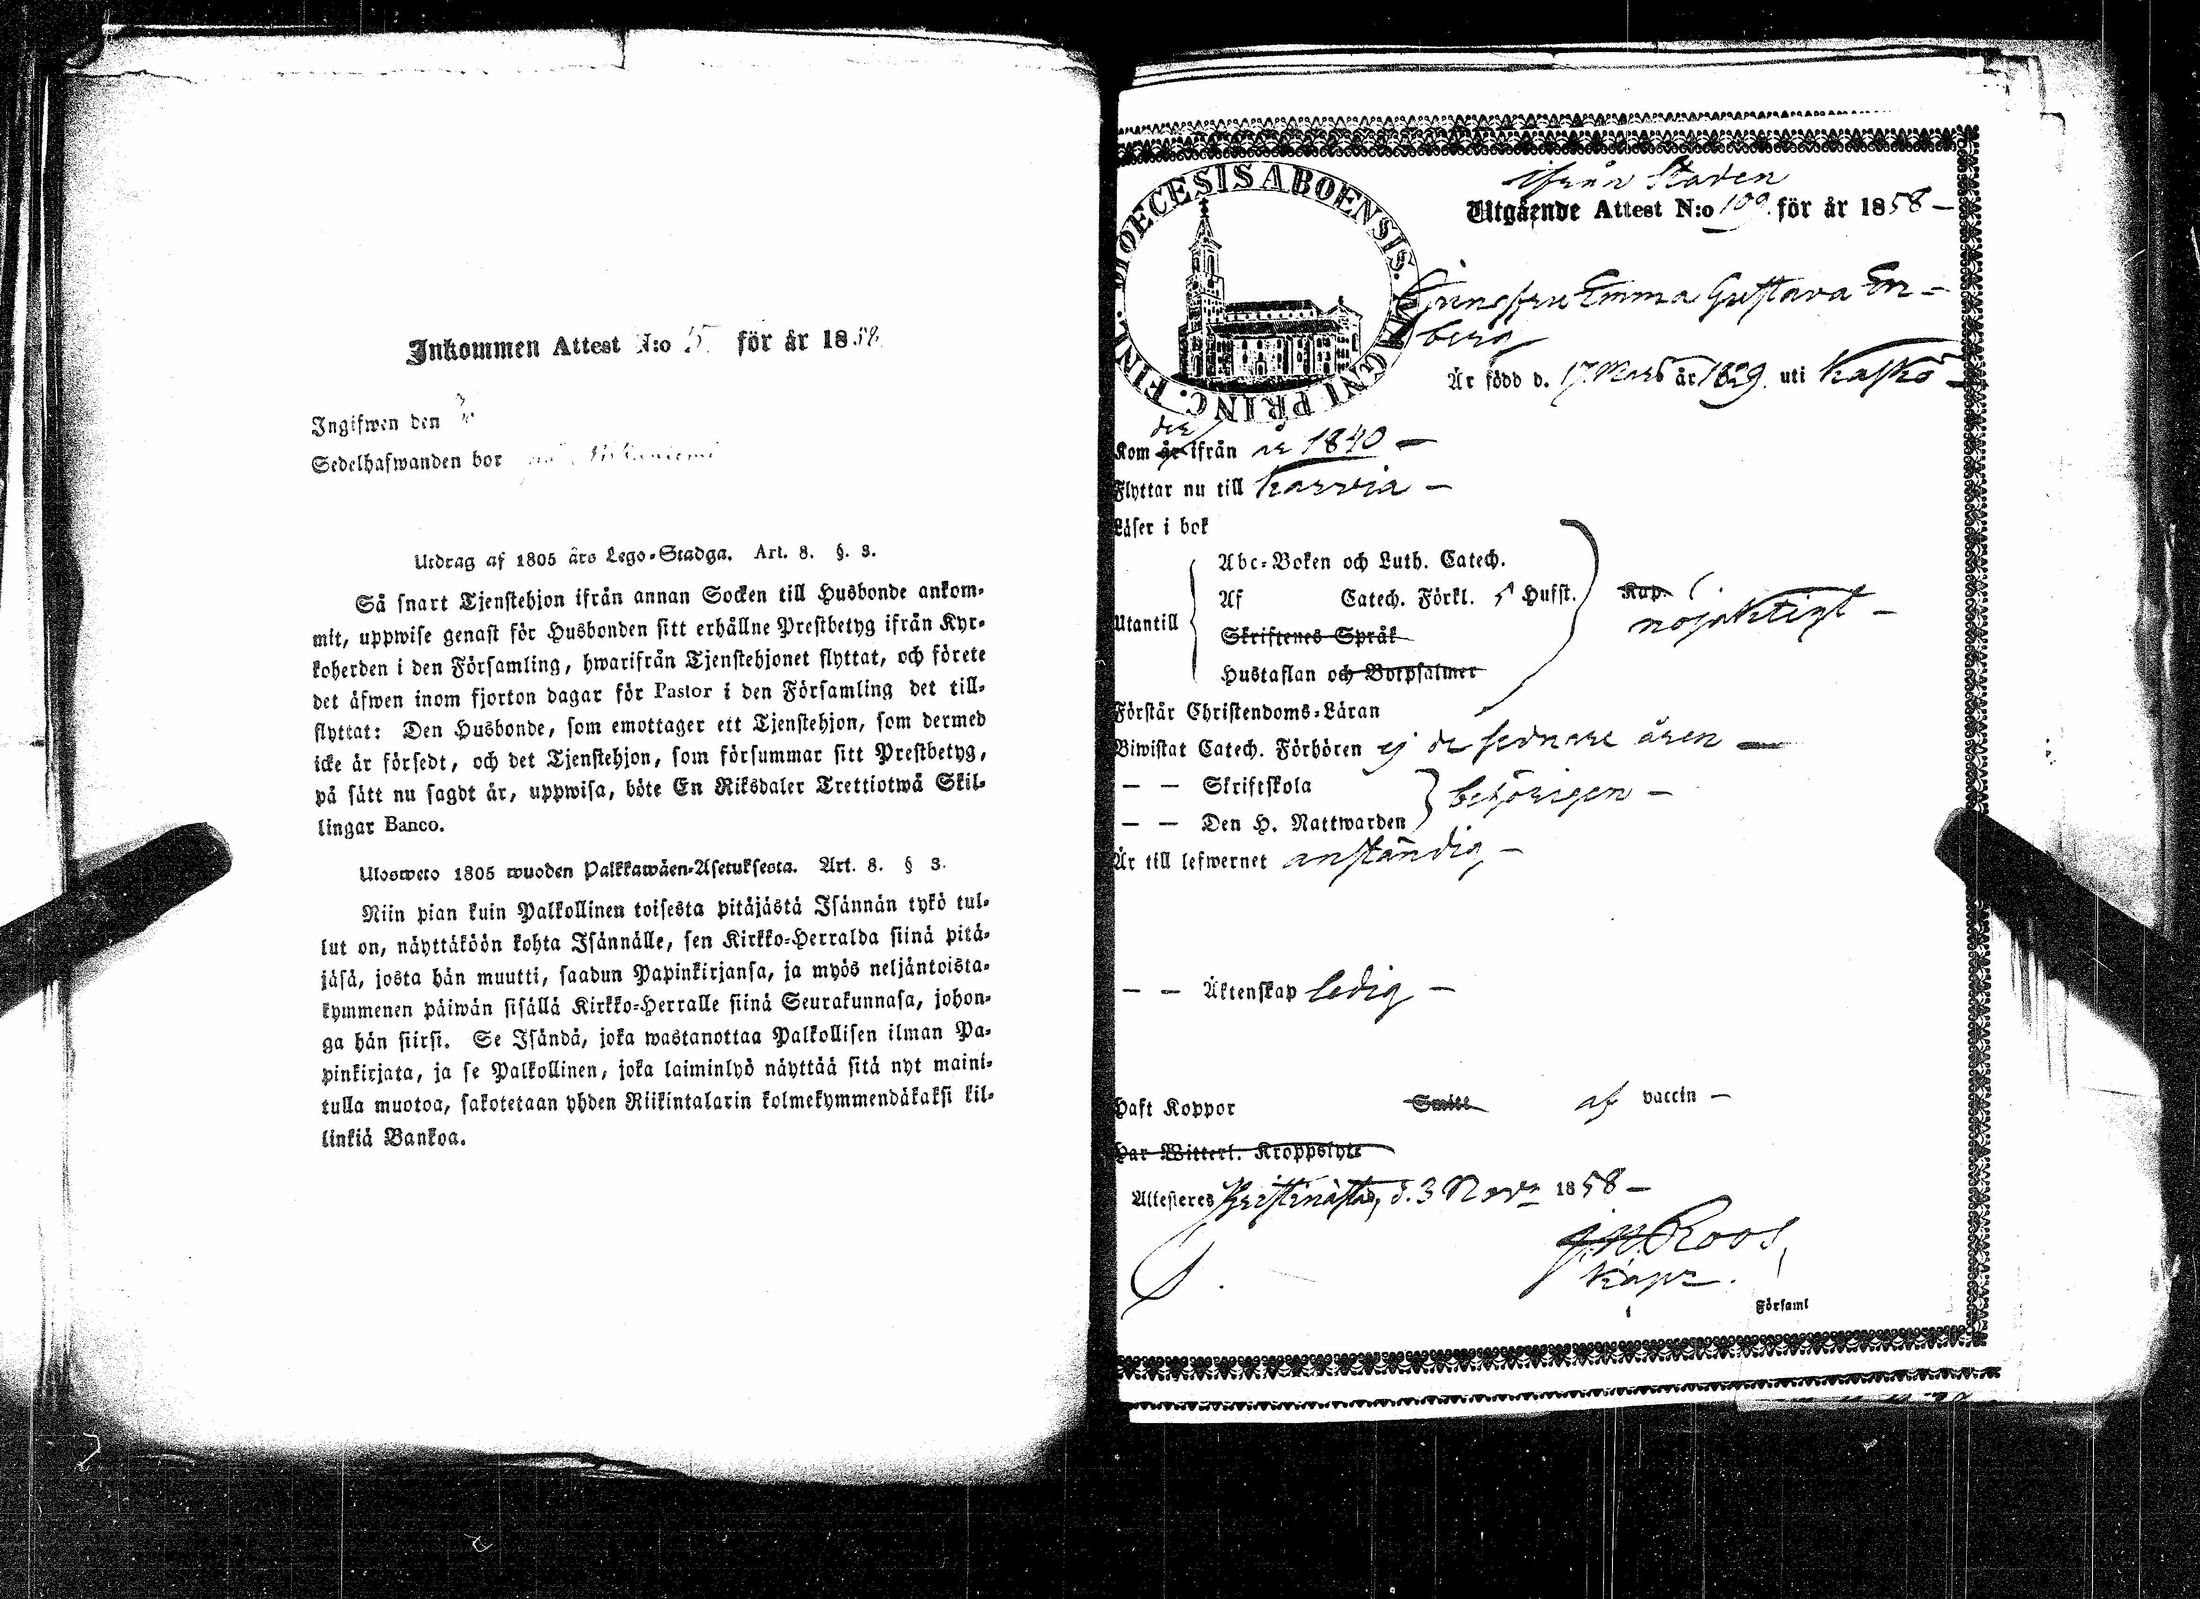 Inkommen Attest N:o 5 för år 1858
Ingifwen den
Sedelhafwanden bor
Utdrag af 1805 års Lego-Stadga. Art. 8. §. 3.
Så snart Tjenstehjon ifrån annan Socken till Husbonde ankom-
mit, uppwise genast för Husbonden sitt erhållne Prestbetyg ifrån Kyr-
koherden i den Församling, hwarifrån Tjenstehjonet flyttat, och förete
det äfwen inom fjorton dagar för Pastor i den Församling det till-
flyttat: Den Husbonde, som emottager ett Tjenstehjon, som dermed
icke är försedt, och det Tjenstehjon, som försummar sitt Prestbetyg,
på sätt nu sagdt är, uppwisa, böte En Riksdaler Trettiotwå Skil-
lingar Banco.
Ulosweto 1805 wuoden Palkkawäen-Asetuksesta. Art. 8. § 3.
Niin pian kuin Palkollinen toisesta pitäjästä Isännän tykö tul-
lut on, näyttäköön kohta Isännälle, sen Kirkko-Herralda siinä pitä-
jäsä, josta hän muutti, saadun Papinkirjansa, ja myös neljäntoista-
kymmenen päiwän sisällä Kirkko-Herralle siinä Seurakunnasa, johon-
ga hän siirsi. Se Isändä, joka wastanottaa Palkollisen ilman Pa-
pinkirjata, ja se Palkollinen, joka laiminlyö näyttää sitä nyt maini-
tulla muotoa, sakotetaan yhden Riikintalarin kolmekymmendäkaksi kil-
linkiä Bankoa.
DIOECESIS ABOENSIS. MAGNI PRINC. FINL.
ifrån Staden
Utgående Attest N:o 109. för år 1858 —
Emma Gustava En-
berg
Är född d. 17 Mars år 1829. uti Kaskö —
Kom år ifrån år 1840 —
Flyttar nu till Karvia —
Läser i bok
Abc-Boken och Luth. Catech.
Utantill Af Catech. Förkl. 5 Hufst. Kap.
nöjaktigt —
Skriftenes Språk
Hustaflan och Botpsalmer
Förstår Christendoms-Läran
Biwistat Catech. Förhören ej de sednare åren —
— — Skriftskola
behörigen —
— — Den H. Nattwarden
Är till lefwernet anständig —
— — Äktenskap ledig —
Haft Koppor Smitt af vaccin —
Har Witterl. Kroppslyte
Attesteres Kristinestad, d. 3 Novr 1858 —
J. N. Roos
Kapn.
Församl